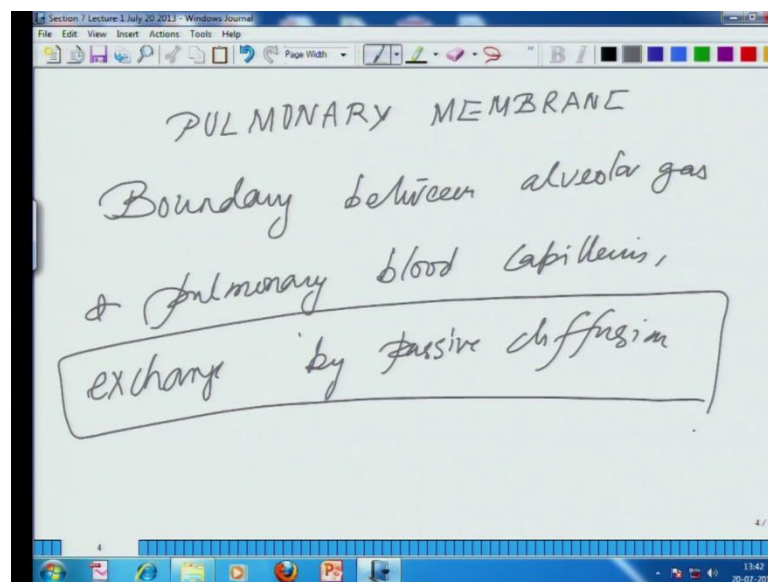 Section 7 Lecture 1 July 20 2013 - Windows Journal
File Edit View Insert Actions Tools Help
Page Width
B I
PULMONARY MEMBRANE
Boundary between alveolar gas
& pulmonary blood capilleries,
exchange by passive diffusion
4/
4
13:42
20-07-20